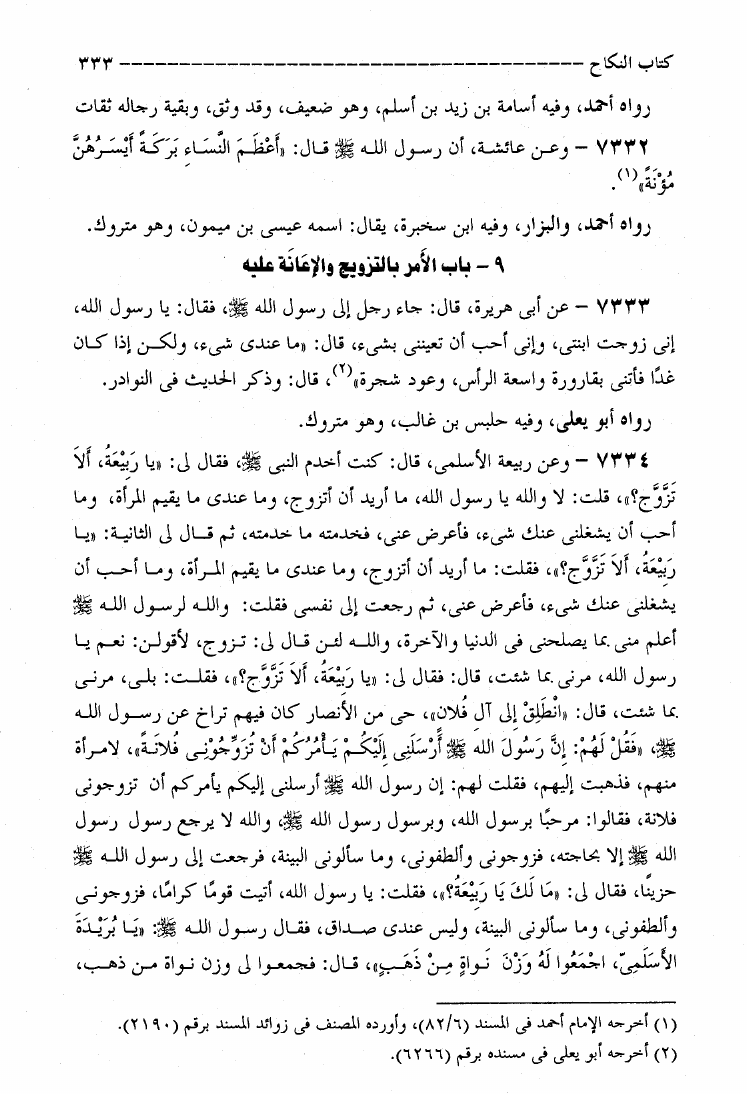 كتاب النكاح --------------------------------------- ٣٣٣
رواه أحمد، وفيه أسامة بن زيد بن أسلم، وهو ضعيف، وقد وثق، وبقية رجاله ثقات
٧٣٣٢ – وعن عائشة، أن رسول الله ﷺ قال: «أَعْظَمَ النَّسَاءِ بَرَكَةً أَيْسَرُهُنَّ
مُؤْنَةً»(١).
رواه أحمد، والبزار، وفيه ابن سخبرة، يقال: اسمه عيسى بن ميمون، وهو متروك.
٩ – باب الأَمر بالتزويج والإعَانَة عليه
٧٣٣٣ – عن أبى هريرة، قال: جاء رجل إلى رسول الله ﷺ، فقال: يا رسول الله،
إنى زوجت ابنتى، وإنى أحب أن تعيننى بشىء، قال: «ما عندى شىء، ولكن إذا كان
غدًا فأتنى بقارورة واسعة الرأس، وعود شجرة»(٢)، قال: وذكر الحديث فى النوادر.
رواه أبو يعلى، وفيه حلبس بن غالب، وهو متروك.
٧٣٣٤ – وعن ربيعة الأسلمى، قال: كنت أخدم النبى ﷺ، فقال لى: «يا رَبِيْعَةُ، أَلاَ
تَزَّوَّج؟»، قلت: لا والله يا رسول الله، ما أريد أن أتزوج، وما عندى ما يقيم المرأة، وما
أحب أن يشغلنى عنك شىء، فأعرض عنى، فخدمته ما خدمته، ثم قال لى الثانية: «يا
رَبِيْعَةُ، أَلاَ تَزَّوَّج؟»، فقلت: ما أريد أن أتزوج، وما عندى ما يقيم المرأة، وما أحب أن
يشغلنى عنك شىء، فأعرض عنى، ثم رجعت إلى نفسى فقلت: والله لرسول الله ﷺ
أعلم منى بما يصلحنى فى الدنيا والآخرة، والله لئن قال لى: تزوج، لأقولن: نعم يا
رسول الله، مرنى بما شئت، قال: فقال لى: «يا رَبِيْعَةُ، أَلاَ تَزَّوَّج؟»، فقلت: بلى، مرنى
بما شئت، قال: «انْطَلِقْ إِلى آل فُلان»، حى من الأنصار كان فيهم تراخ عن رسول الله
ﷺ، «فَقُلْ لَهُمْ: إِنَّ رَسُولَ الله ﷺ أَرْسَلَنِى إِلَيْكُمْ يَأْمُرُكُمْ أَنْ تُزَوِّجُوْنِى فُلانَةً»، لامرأة
منهم، فذهبت إليهم، فقلت لهم: إن رسول الله ﷺ أرسلنى إليكم يأمركم أن تزوجونى
فلانة، فقالوا: مرحبًا برسول الله، وبرسول رسول الله ﷺ، والله لا يرجع رسول رسول
الله ﷺ إلا بحاجته، فزوجونى وألطفونى، وما سألونى البينة، فرجعت إلى رسول الله ﷺ
حزينًا، فقال لى: «مَا لَكَ يَا رَبِيْعَةُ؟»، فقلت: يا رسول الله، أتيت قومًا كرامًا، فزوجونى
وألطفونى، وما سألونى البينة، وليس عندى صداق، فقال رسول الله ﷺ: «يَا بُرَيْدَةَ
الأَسْلَمِىّ، اجْمَعُوا لَهُ وَزْنَ نَواةٍ مِنْ ذَهَبٍ»، قال: فجمعوا لى وزن نواة من ذهب،
(١) أخرجه الإمام أحمد فى المسند (٨٢/٦)، وأورده المصنف فى زوائد المسند برقم (٢١٩٠).
(٢) أخرجه أبو يعلى فى مسنده برقم (٦٢٦٦).